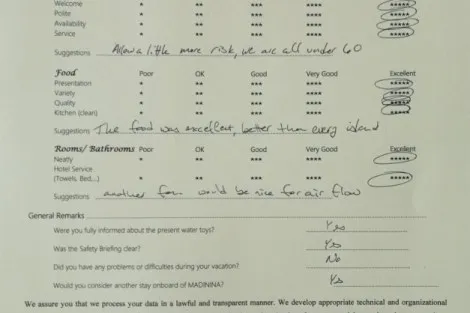 Welcome * ** *** **** *****
Polite * ** *** **** *****
Availability * ** *** **** *****
Service * ** *** **** *****
Suggestions Allow a little more risk, we are all under 60
Food Poor OK Good Very Good Excellent
Presentation * ** *** **** *****
Variety * ** *** **** *****
Quality * ** *** **** *****
Kitchen (clean) * ** *** **** *****
Suggestions The food was excellent, better than every island
Rooms/ Bathrooms Poor OK Good Very Good Excellent
Neatly * ** *** **** *****
Hotel Service
(Towels, Bed,...) * ** *** **** *****
Suggestions another fan would be nice for air flow
General Remarks
Were you fully informed about the present water toys? Yes
Was the Safety Briefing clear? Yes
Did you have any problems or difficulties during your vacation? No
Would you consider another stay onboard of MADININA? Yes
We assure you that we process your data in a lawful and transparent manner. We develop appropriate technical and organizational